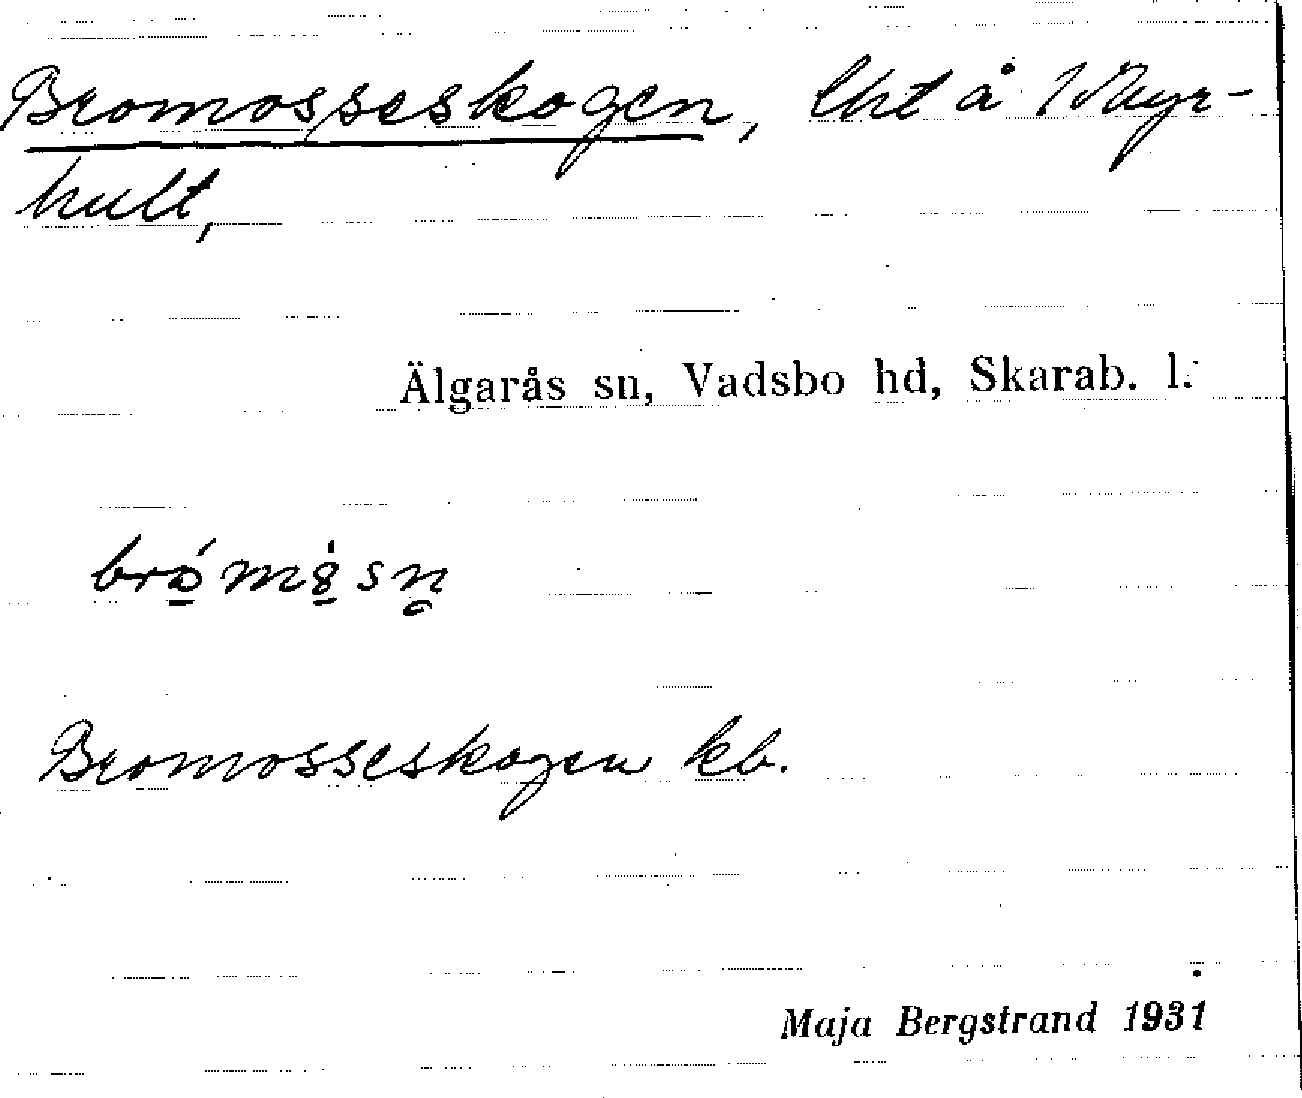 Bromosseskogen, lht å 1 Myr-
hult,
Älgarås sn, Vadsbo hd, Skarab. l.
Bromosseskogen kb.
Maja Bergstrand 1931